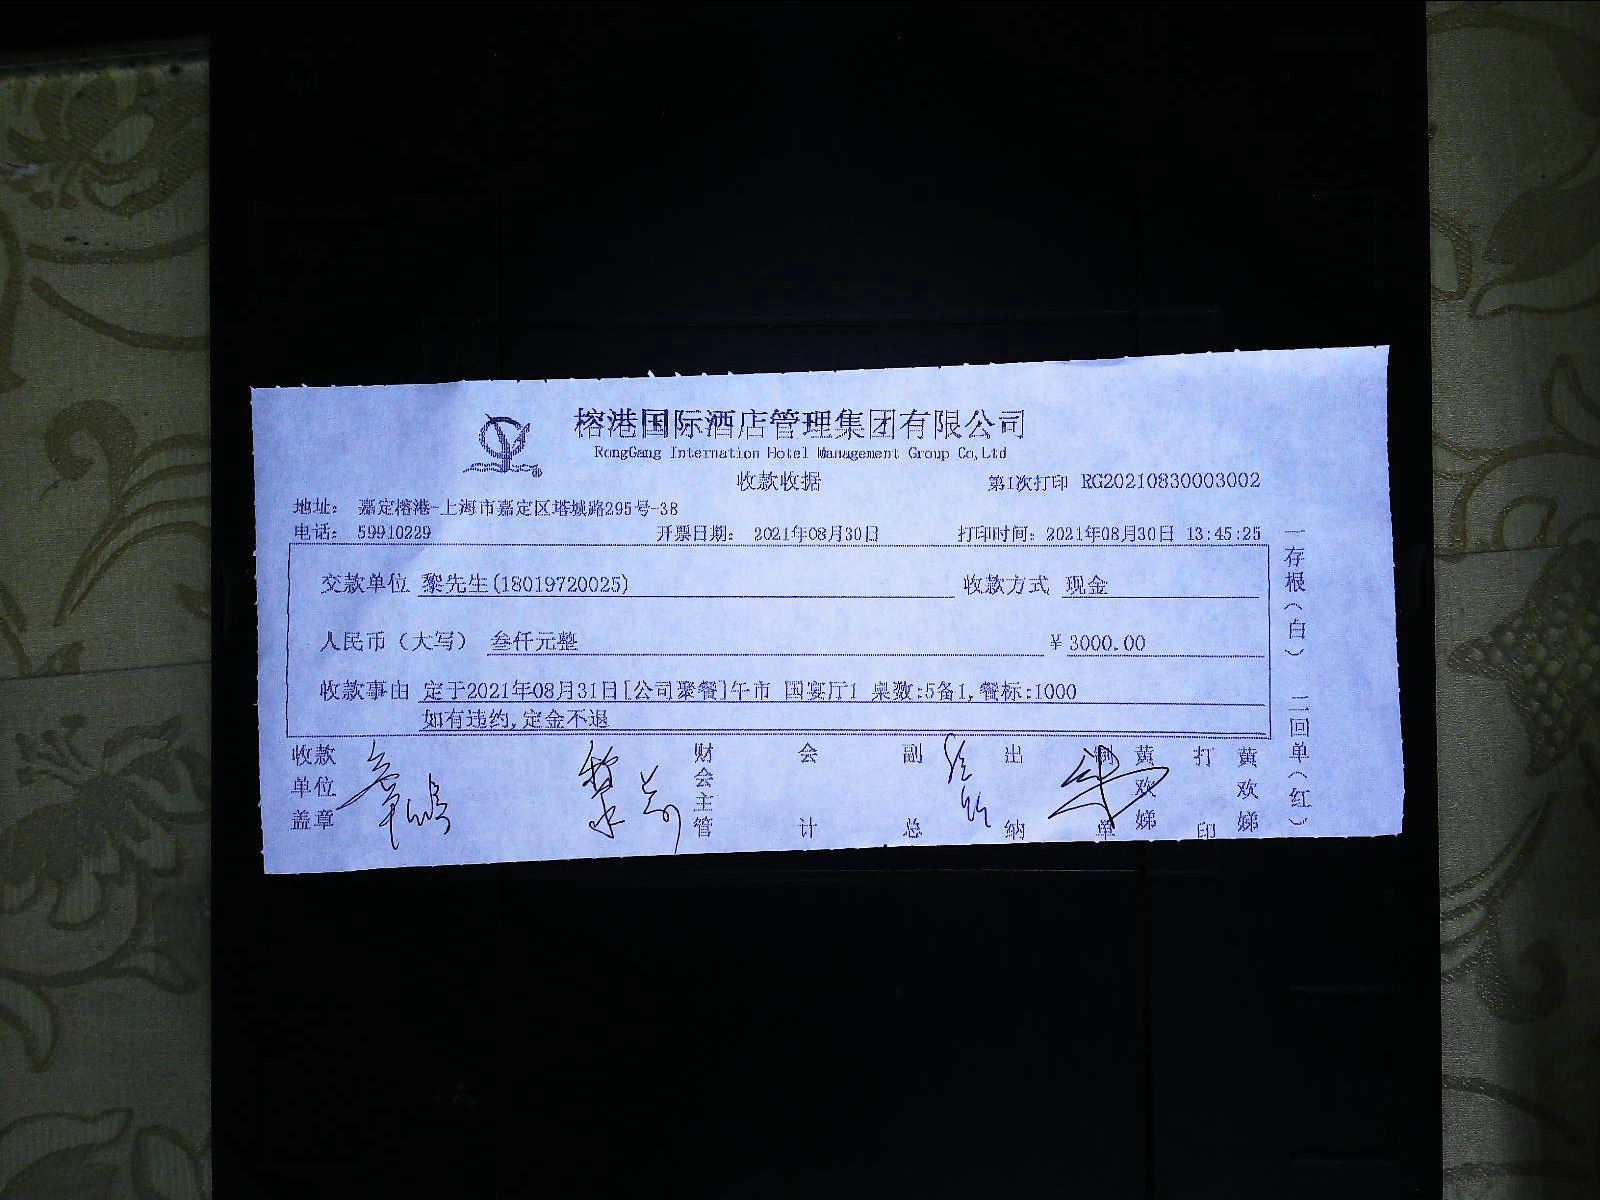 榕港国际酒店管理集团有限公司
RongGang Internation Hotel Management Group Co,Ltd
收款收据
第1次打印 RG20210830003002
地址： 嘉定榕港-上海市嘉定区塔城路295号-38
电话： 59910229 开票日期： 2021年08月30日 打印时间：2021年08月30日 13:45:25
交款单位 黎先生(18019720025) 收款方式 现金
人民币（大写） 叁仟元整 ￥3000.00
收款事由 定于2021年08月31日[公司聚餐]午市 国宴厅1 桌数:5备1,餐标:1000
如有违约,定金不退
收款单位盖章 财会主管 会计 副总 出纳 制单 黄欢娣 打印 黄欢娣
一存根（白） 二回单（红）